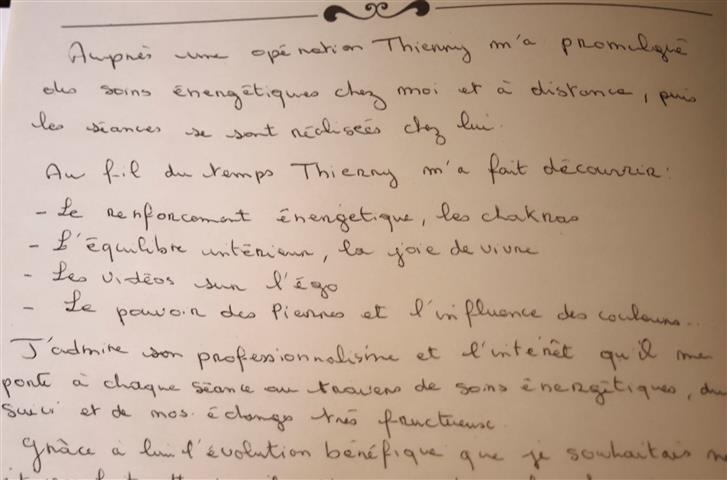 Auprès une opération Thierry m'a promulgué
des soins énergétiques chez moi et à distance, puis
les séances se sont réalisées chez lui.
Au fil du temps Thierry m'a fait découvrir:
- Le renforcement énergétique, les chakras
- L'équilibre intérieur, la joie de vivre
- Les vidéos sur l'égo
- Le pouvoir des Pierres et l'influence des couleurs...
J'admire son professionnalisme et l'intérêt qu'il me
porte à chaque séance au travers de soins énergétiques, du
suivi et de nos échanges très fructueuse.
Grâce à lui l'évolution bénéfique que je souhaitais